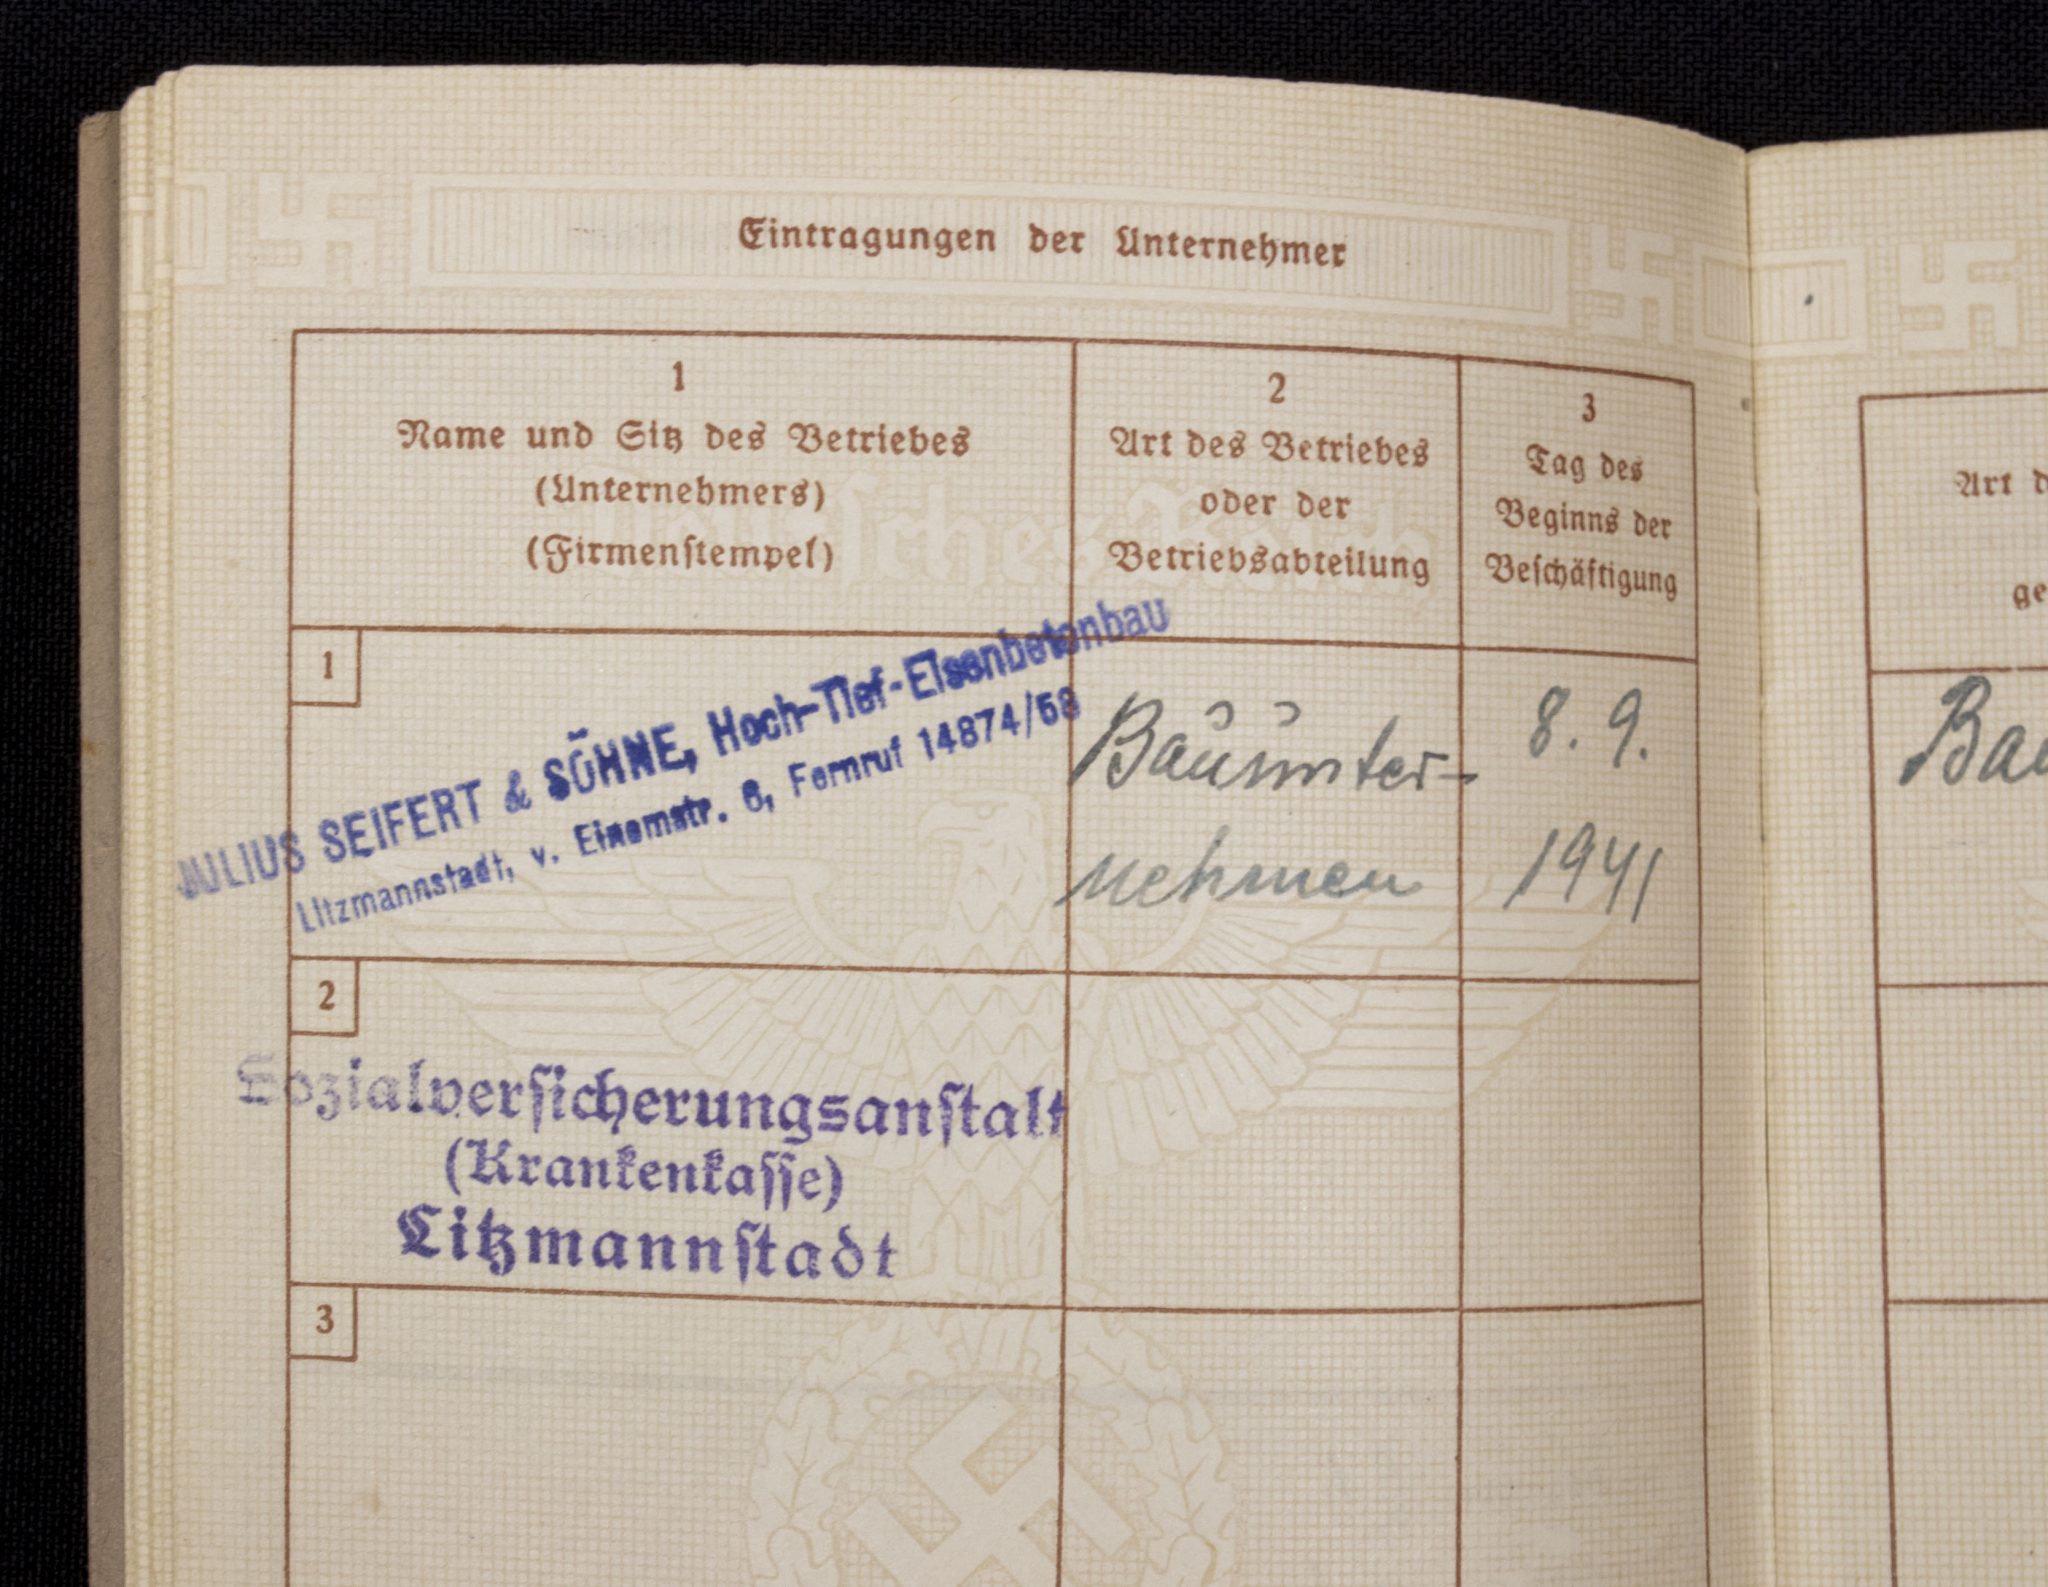 Eintragungen der Unternehmer
1
Name und Sitz des Betriebes
(Unternehmers)
(Firmenstempel)
2
Art des Betriebes
oder der
Betriebsabteilung
3
Tag des
Beginns der
Beschäftigung
1
JULIUS SEIFERT & SÖHNE, Hoch-Tief-Eisenbetonbau
Litzmannstadt, v. Einemstr. 6, Fernruf 14874/58
Bauunter-
nehmen
8. 9.
1941
2
Sozialversicherungsanstalt
(Krankenkasse)
Litzmannstadt
3
Art d
ge
Bau